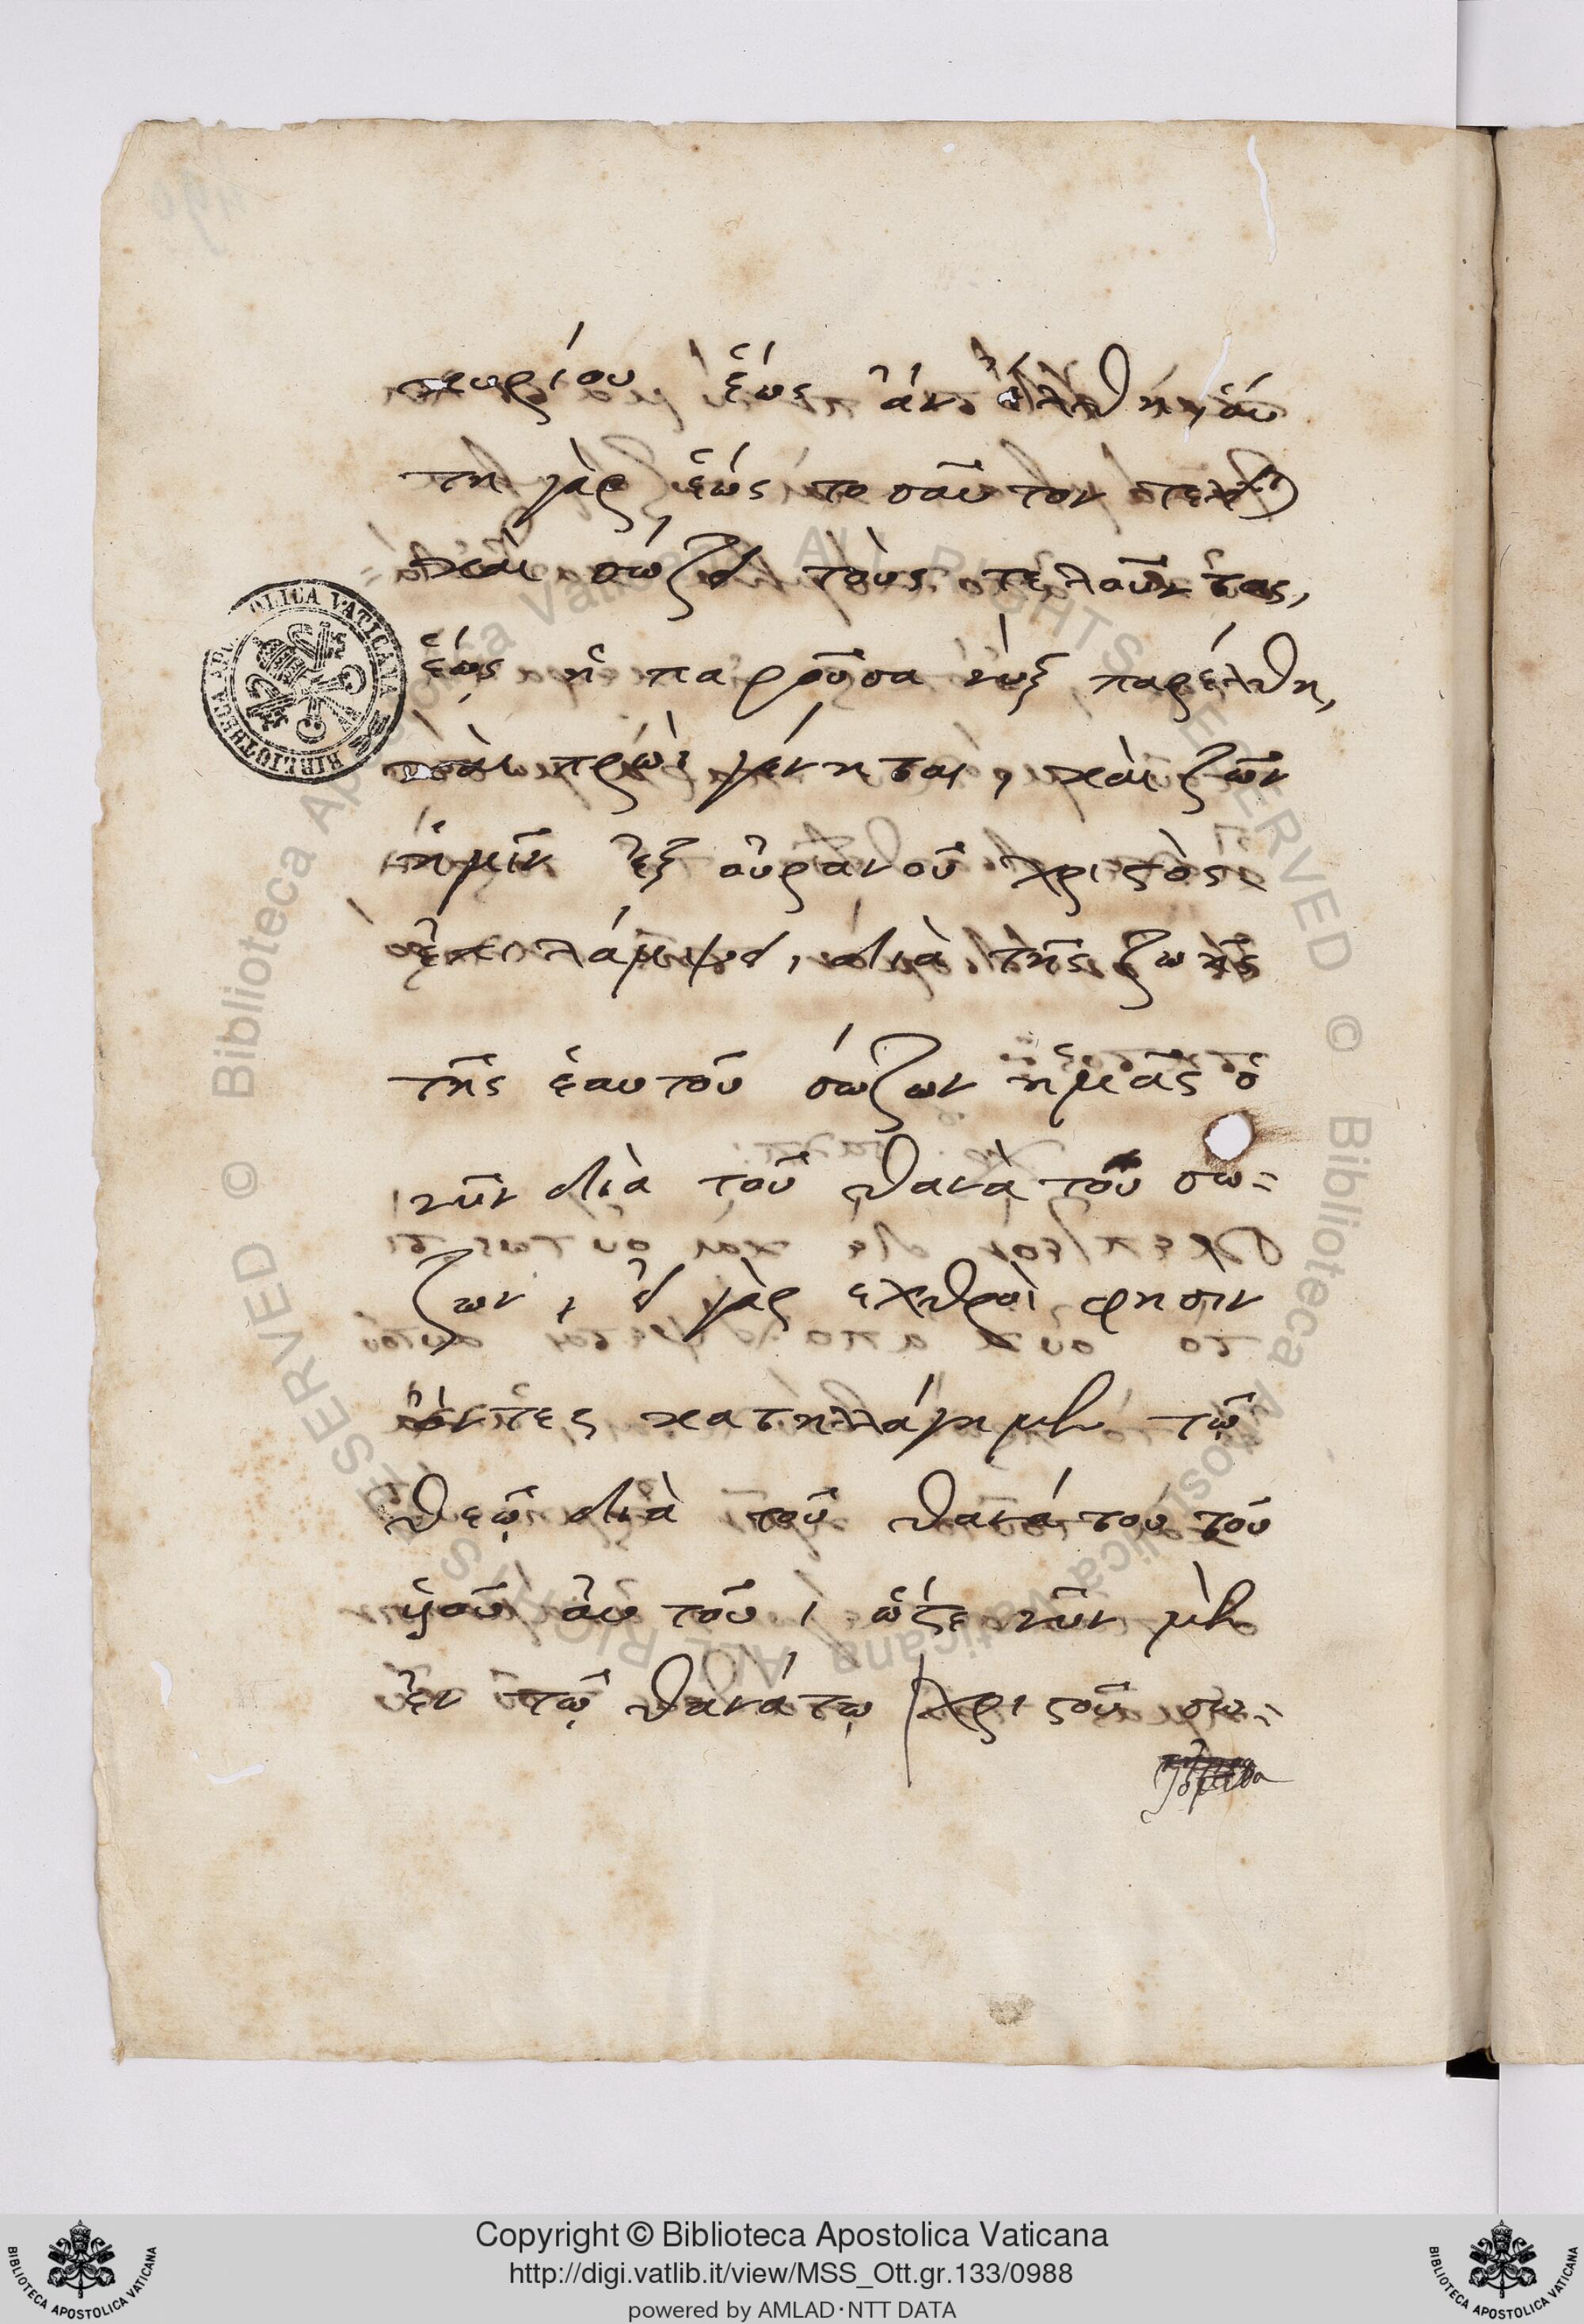 κυρίου ἕως ἂν ἔλθη, αὐ
τη γὰρ ἕως τοσαῦτον τελεῖ
καὶ σώζει τοὺς τελοῦντας,
ἕως ἡ παροῦσα νὺξ παρέλθη,
καὶ πρωῒ γένηται, καὶ ζῶν
ἡμῖν ἐξ οὐρανοῦ χριστὸς
ἐπιλάμψει, διὰ τῆς ζωῆς
τῆς ἑαυτοῦ σώζων ἡμᾶς ὁ
νῦν διὰ τοῦ θανὰτοῦ σω-
ζων, εἰ γὰρ εχθροὶ φησιν
ὄντες κατηλλάγημεν τῷ
θεῷ διὰ τοῦ θανάτου τοῦ
ὑιοῦ αὐτοῦ, ὥστε νῦν μὲν
ἐν τῷ θανάτῳ χριστοῦ σω-
BIBLIOTECA APOSTOLICA VATICANA
© Biblioteca Apostolica Vaticana ALL RIGHTS RESERVED © Biblioteca Apostolica Vaticana ALL RIGHTS RESERVED
Copyright © Biblioteca Apostolica Vaticana
http://digi.vatlib.it/view/MSS_Ott.gr.133/0988
powered by AMLAD·NTT DATA
BIBLIOTECA APOSTOLICA VATICANA
BIBLIOTECA APOSTOLICA VATICANA